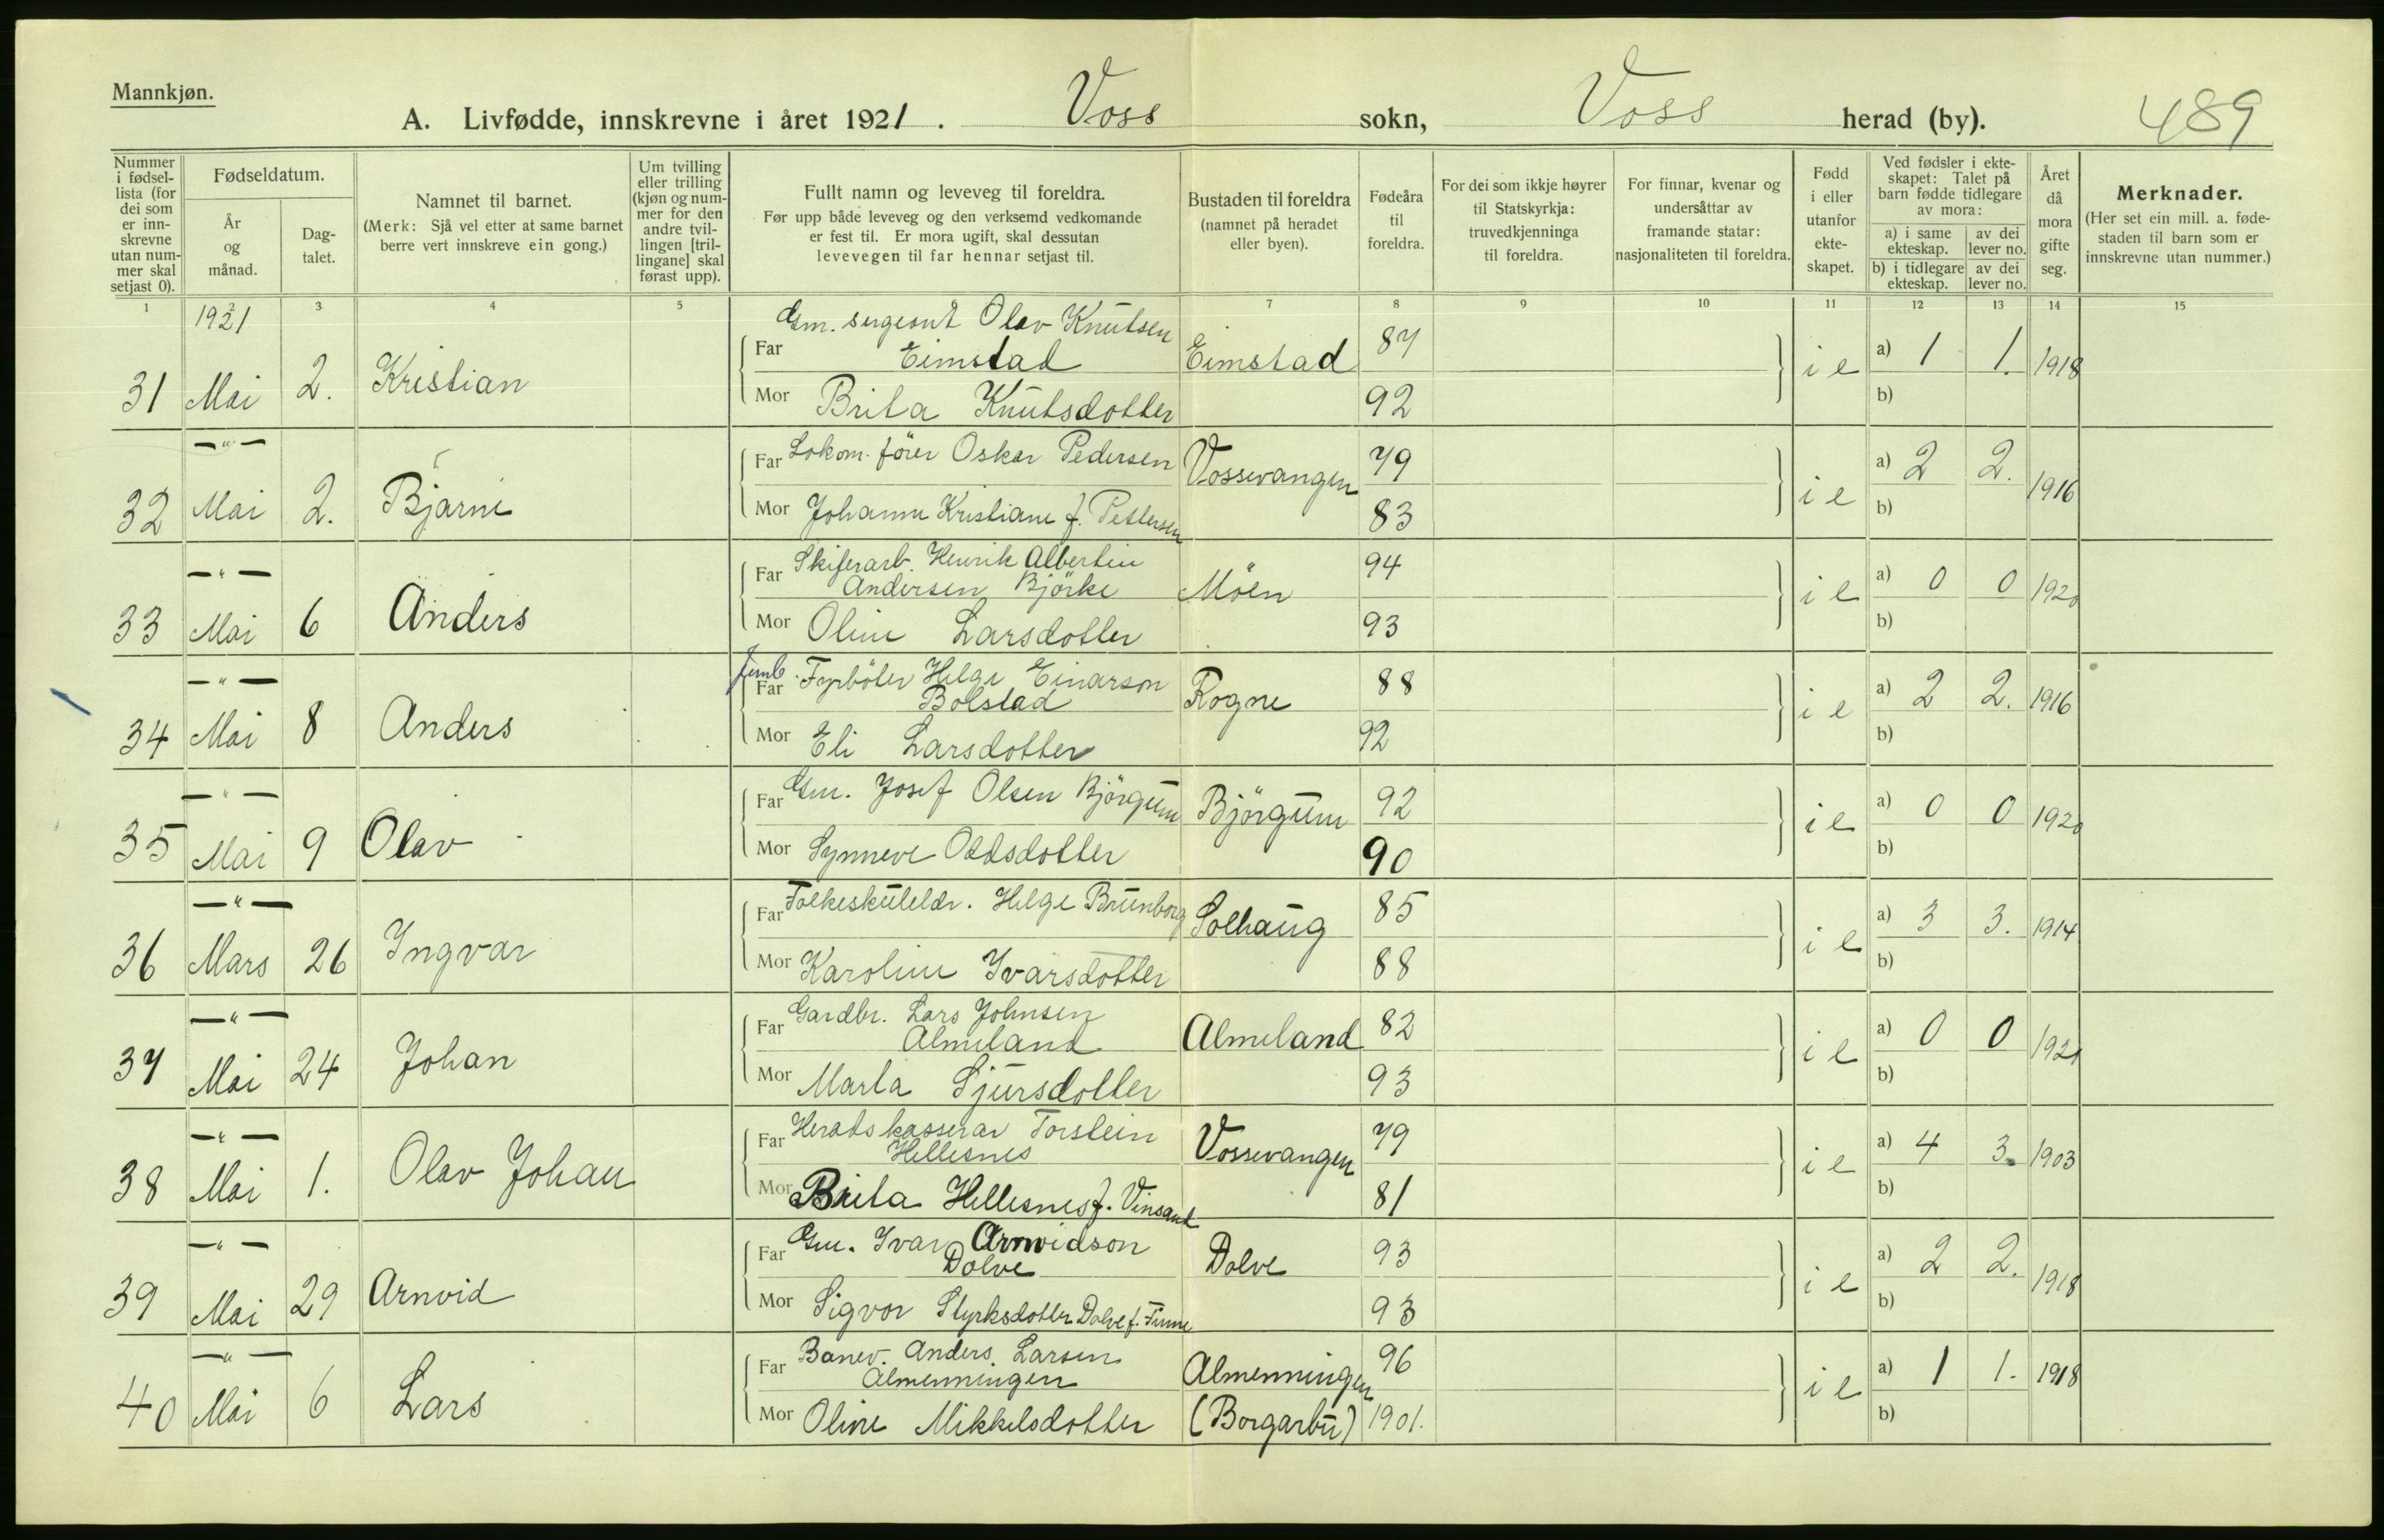 Mannkjøn.
A. Livfødde, innskrevne i året 1921. Voss sokn, Voss herad (by). 489
Nummer i fødsel-lista (for dei som er inn-skrevne utan num-mer skal setjast 0).
Fødseldatum.
År og månad.
Dag-talet.
Namnet til barnet.
(Merk: Sjå vel etter at same barnet berre vert innskreve ein gong.)
Um tvilling eller trilling (kjøn og num-mer for den andre tvil-lingen [tril-lingane] skal førast upp).
Fullt namn og leveveg til foreldra.
Før upp både leveveg og den verksemd vedkomande er fest til. Er mora ugift, skal dessutan levevegen til far hennar setjast til.
Bustaden til foreldra
(namnet på heradet eller byen).
Fødeåra til foreldra.
For dei som ikkje høyrer til Statskyrkja: truvedkjenninga til foreldra.
For finnar, kvenar og undersåttar av framande statar: nasjonaliteten til foreldra.
Fødd i eller utanfor ekte-skapet.
Ved fødsler i ekte-skapet: Talet på barn fødde tidlegare av mora:
a) i same ekteskap. av dei lever no.
b) i tidlegare ekteskap. av dei lever no.
Året då mora gifte seg.
Merknader.
(Her set ein mill. a. føde-staden til barn som er innskrevne utan nummer.)
1 2 3 4 5 7 8 9 10 11 12 13 14 15
1921
Gm. sergeant Olav Knutsen
31 Mai 2. Kristian Far Eimstad Eimstad 87 i e a) 1 1. 1918
Mor Brita Knutsdotter 92 b)
—"—
32 Mai 2. Bjarne Far Lokom. förer Oskar Pedersen Vossevangen 79 i e a) 2 2. 1916
Mor Johanne Kristiane f. Pettersen 83 b)
—"—
33 Mai 6 Anders Far Skiferarb. Henrik Albertin
Andersen Björke Möen 94 i e a) 0 0 1920
Mor Oline Larsdotter 93 b)
—"—
34 Mai 8 Anders Far Jernb. Fyrböter Helge Einarson
Bolstad Rogne 88 i e a) 2 2. 1916
Mor Eli Larsdotter 92 b)
—"—
35 Mai 9 Olav Far Gm. Josef Olsen Björgum Björgum 92 i e a) 0 0 1920
Mor Synneve Oddsdotter 90 b)
—"—
36 Mars 26 Ingvar Far Folkeskuleldr. Helge Brunborg Solhaug 85 i e a) 3 3. 1914
Mor Karoline Ivarsdotter 88 b)
—"—
37 Mai 24 Johan Far Gardbr. Lars Johnsen
Almeland Almeland 82 i e a) 0 0 1920
Mor Marta Sjursdotter 93 b)
—"—
38 Mai 1. Olav Johan Far Heradskasserar Torstein
Hellesnes Vossevangen 79 i e a) 4 3. 1903
Mor Brita Hellesnes f. Vinsand 81 b)
—"—
39 Mai 29 Arnvid Far Gm. Ivar Arnvidson
Dolve Dolve 93 i e a) 2 2. 1918
Mor Sigvor Styrksdotter Dolve f. Finne 93 b)
—"—
40 Mai 6 Lars Far Banev. Anders Larsen
Almenningen Almenningen 96 i e a) 1 1. 1918
Mor Oline Mikkelsdotter (Borgarbu) 1901. b)